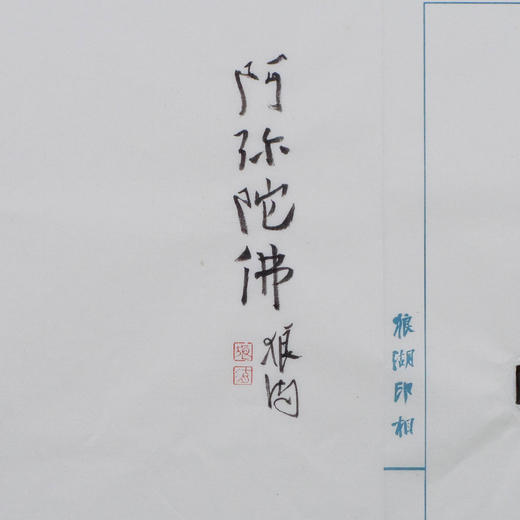 阿弥陀佛
狼湖印相